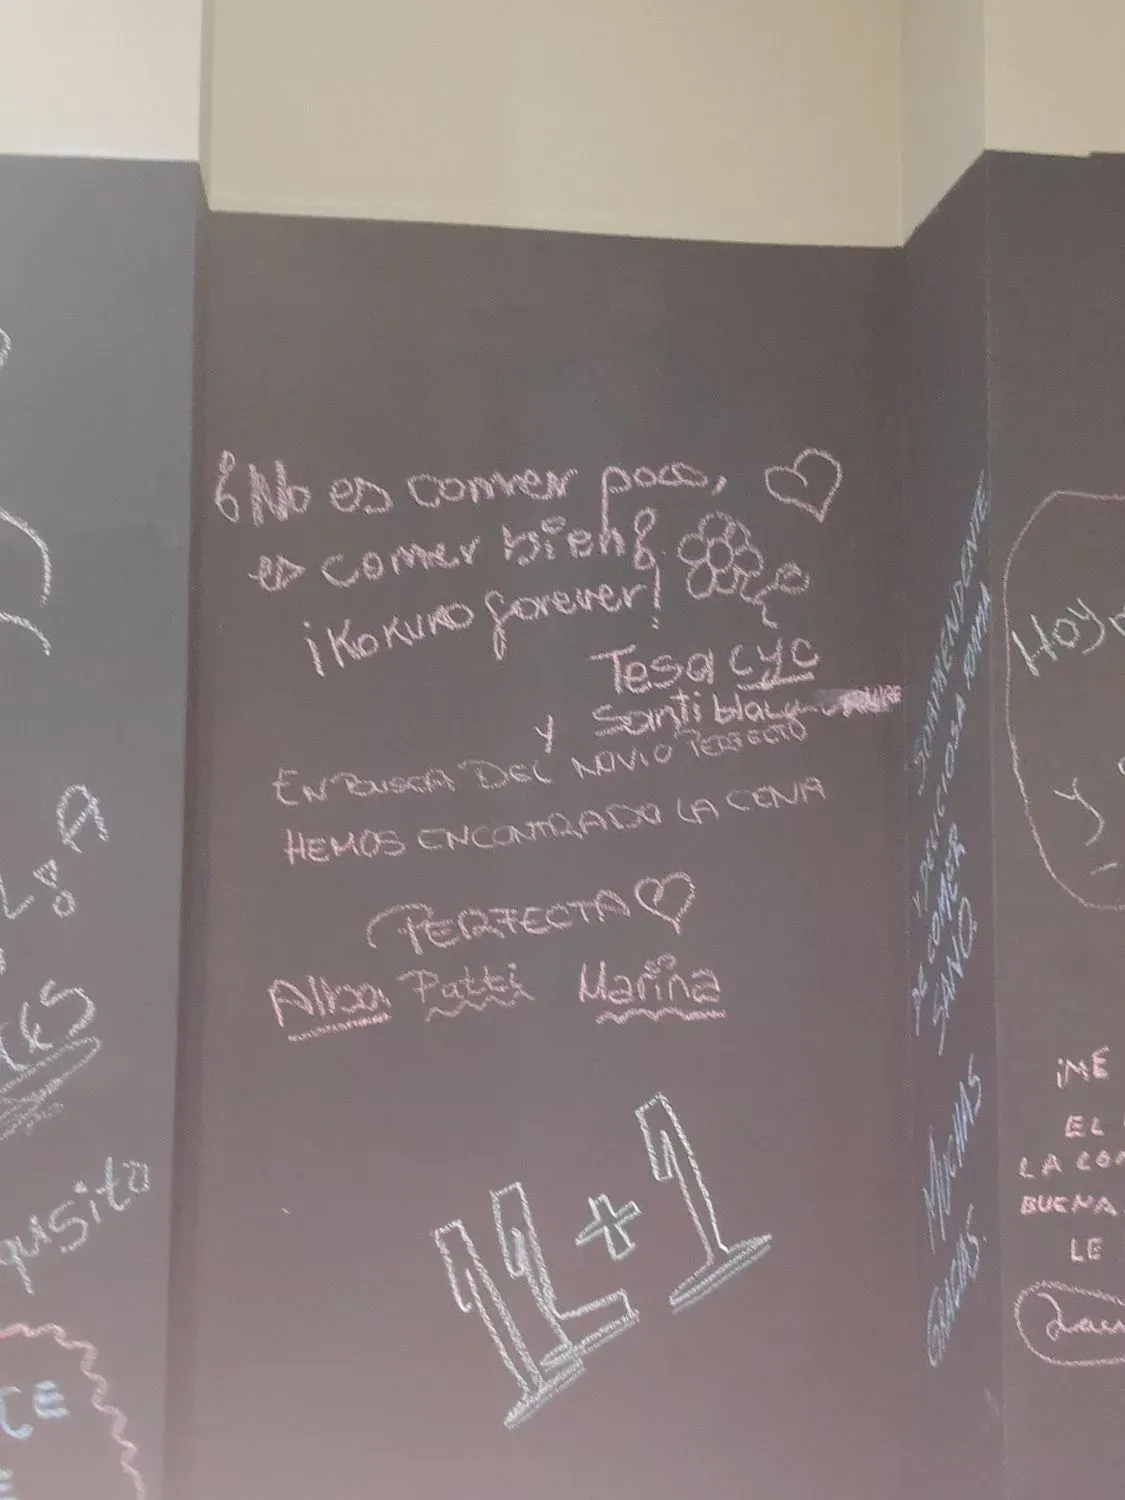 ¿No es comer poco,
es comer bien?
¡Kokuro forever!
Tesa cyc
y Santi blay
EN BUSCA DEL NOVIO PERFECTO
HEMOS ENCONTRADO LA CENA
PERFECTA
Patti Marina
1 + 1
SORPRENDENTE
Y DELICIOSA FORMA
DE COMER
SANO.
MUCHAS
GRACIAS.
Hoy
y
¡ME
EL
LA COM
BUENA
LE
quisito
CE